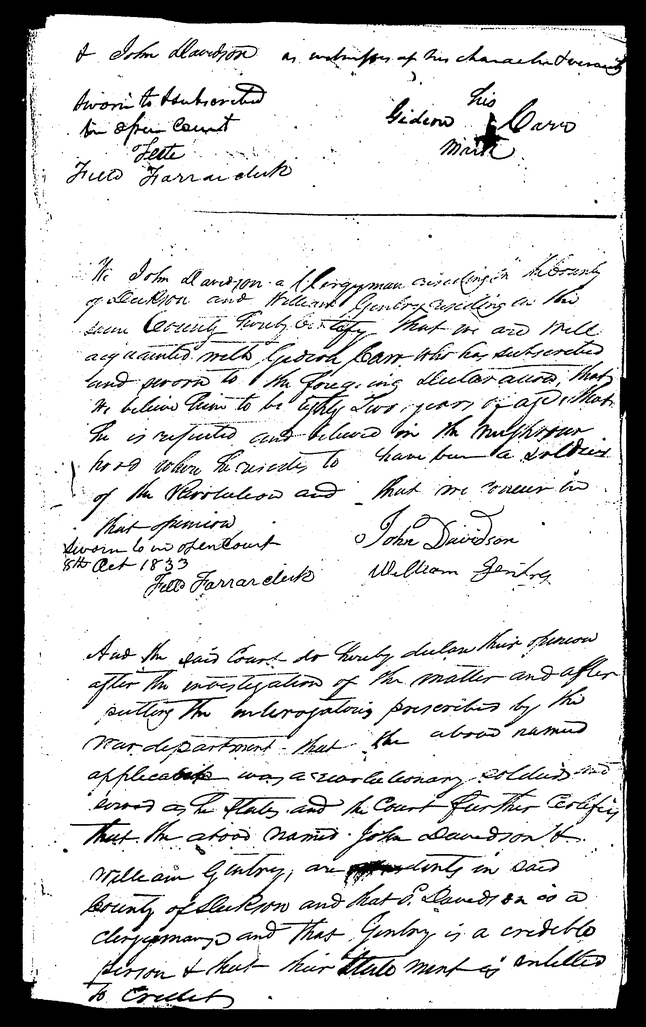 & John Davidson as witnesses of his character & veracity
Sworn to & subscribed
in open Court
Teste
Field Farrar clerk
his
Gideon Carr
mark
We John Davidson a Clergyman residing in the County
of Dickson and William Gentry residing in the
same County hereby Certify that we are well
acquainted with Gideon Carr who has subscribed
and sworn to the foregoing declaration, that
we believe him to be Eighty Two years of age, that
he is reputed and believed in the neighbour
hood where he resides to have been a soldier
of the Revolution and that we concur in
that opinion
Sworn to in open Court
8th Oct 1833
Field Farrar clerk
John Davidson
William Gentry
And the said Court do hereby declare their opinion
after the investigation of the matter and after
putting the interogatories prescribed by the
war department that the above named
applicant was a revolutionary soldier and
served as he states and the Court further Certifies
that the above named John Davidson &
William Gentry, are residents in said
County of Dickson and that Sd. Davidson is a
clergyman and that Gentry is a credible
person & that their statement is entitled
to Credit